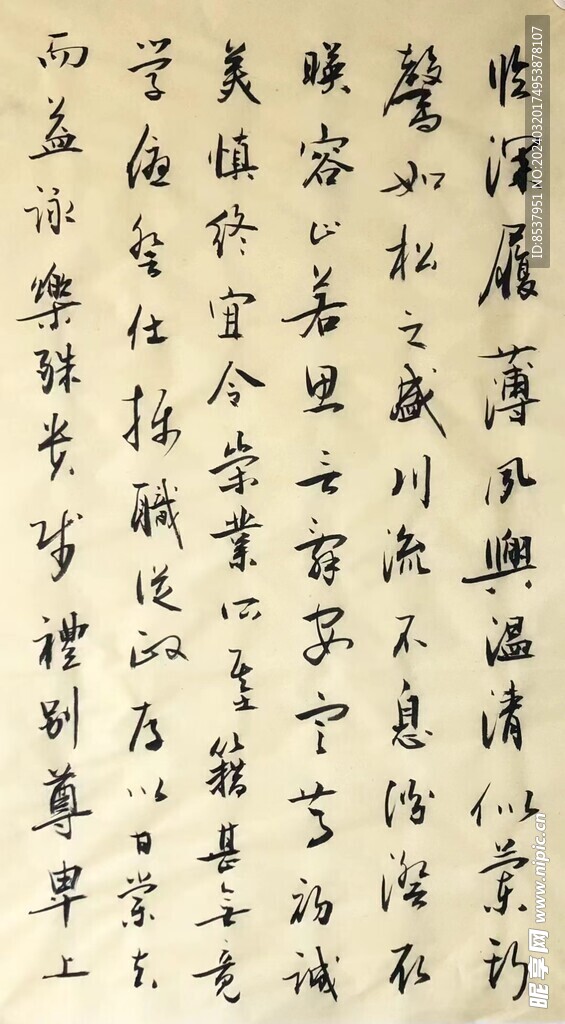 临深履薄夙興温清似蘭斯
馨如松之盛川流不息渊澄取
暎容止若思言辞安定笃初誠
美慎終宜令榮業所基籍甚無竟
学優登仕攝職從政存以甘棠去
而益詠樂殊貴賤禮別尊卑上
ID:8537951 NO:20240320174953878107
昵享网 www.nipic.cn